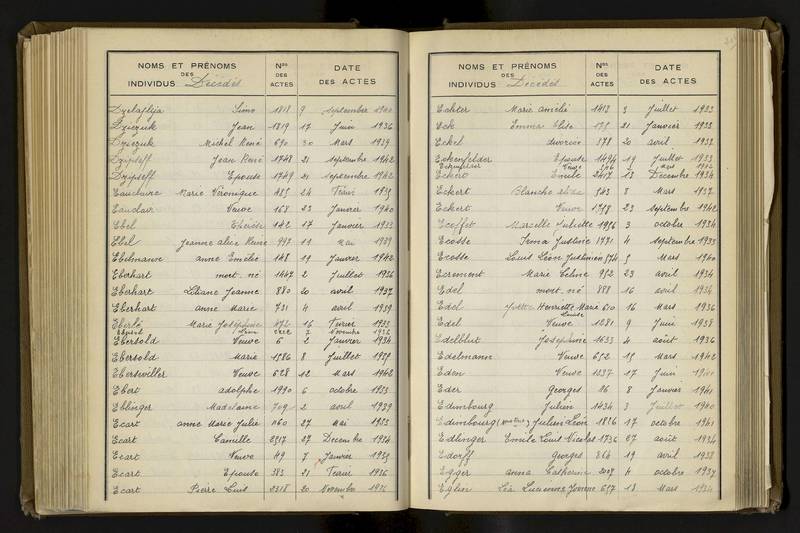 NOMS ET PRÉNOMS DES INDIVIDUS Décédés Nos DES ACTES DATE DES ACTES
Simo 1818 9 septembre 1940
Dziezuk Jean 1819 17 Juin 1936
Dziezuk Michel René 690 30 Mars 1939
Jean René 1748 21 septembre 1942
Epouse 1749 21 septembre 1942
Eauclaire Marie Véronique 485 24 Février 1935
Eauclair Veuve 168 23 Janvier 1940
Ebel 142 17 Janvier 1933
Ebel Jeanne alice René 997 11 Mai 1939
Ebelmann anne Emélie 148 19 Janvier 1942
Eberhart mort né 1447 2 Juillet 1936
Eberhart Liliane Jeanne 880 20 avril 1937
Eberhart anne Marie 731 4 avril 1939
Eberlé Marie Joséphine 472 16 Février 1933
2 Novembre 1936
Ebersold Veuve 6 2 Janvier 1934
Ebersold Marie 1586 8 Juillet 1935
Eberswiller Veuve 628 12 Mars 1942
Ebert adolphe 1990 6 octobre 1933
Eblinger Madelaine 709 2 avril 1939
Ecart anne Marie Julie 1160 27 Mai 1933
Ecart Camille 2517 27 Decembre 1934
Ecart Veuve 49 7 Janvier 1935
Ecart Epouse 383 21 Février 1936
Ecart Pierre Louis 2318 20 Novembre 1936
NOMS ET PRÉNOMS DES INDIVIDUS Décédés Nos DES ACTES DATE DES ACTES
Marie amélie 1412 3 Juillet 1933
Eck Emma Elise 21 Janvier 1933
Eckel divorcée 878 20 avril 1933
Eckenfelder Epouse 1494 19 Juillet 1933
Veuve Mars
Eckert Emile 2417 13 Décembre 1934
Eckert Blanche 543 8 Mars 1937
Eckert Veuve 1758 23 septembre 1942
Ecoffet Marcelle Juliette 1956 3 octobre 1934
Ecosse Irma Justine 1771 4 septembre 1933
Ecosse Louis Léon Justinien 574 5 Mars 1940
Ecrement Marie Celine 952 23 avril 1934
Edel mort né 888 16 avril 1934
Edel Yvette Henriette Marie 610 16 Mars 1936
Louise
Edel Veuve 1281 9 Juin 1938
Edelblut Joséphine 1633 4 août 1936
Edelmann Veuve 652 15 Mars 1942
Eden Veuve 1237 17 Juin 1940
Eder Georges 86 8 Janvier 1941
Edimbourg Julien 1434 3 Juillet 1940
Edimbourg Julien Léon 1816 17 octobre 1941
Edlinger Emile Louis Nicolas 1736 27 août 1934
Edorff Georges 864 19 avril 1938
Egger anna Catherine 2027 4 octobre 1937
Eglin Léa Lucienne 657 13 Mars 1934